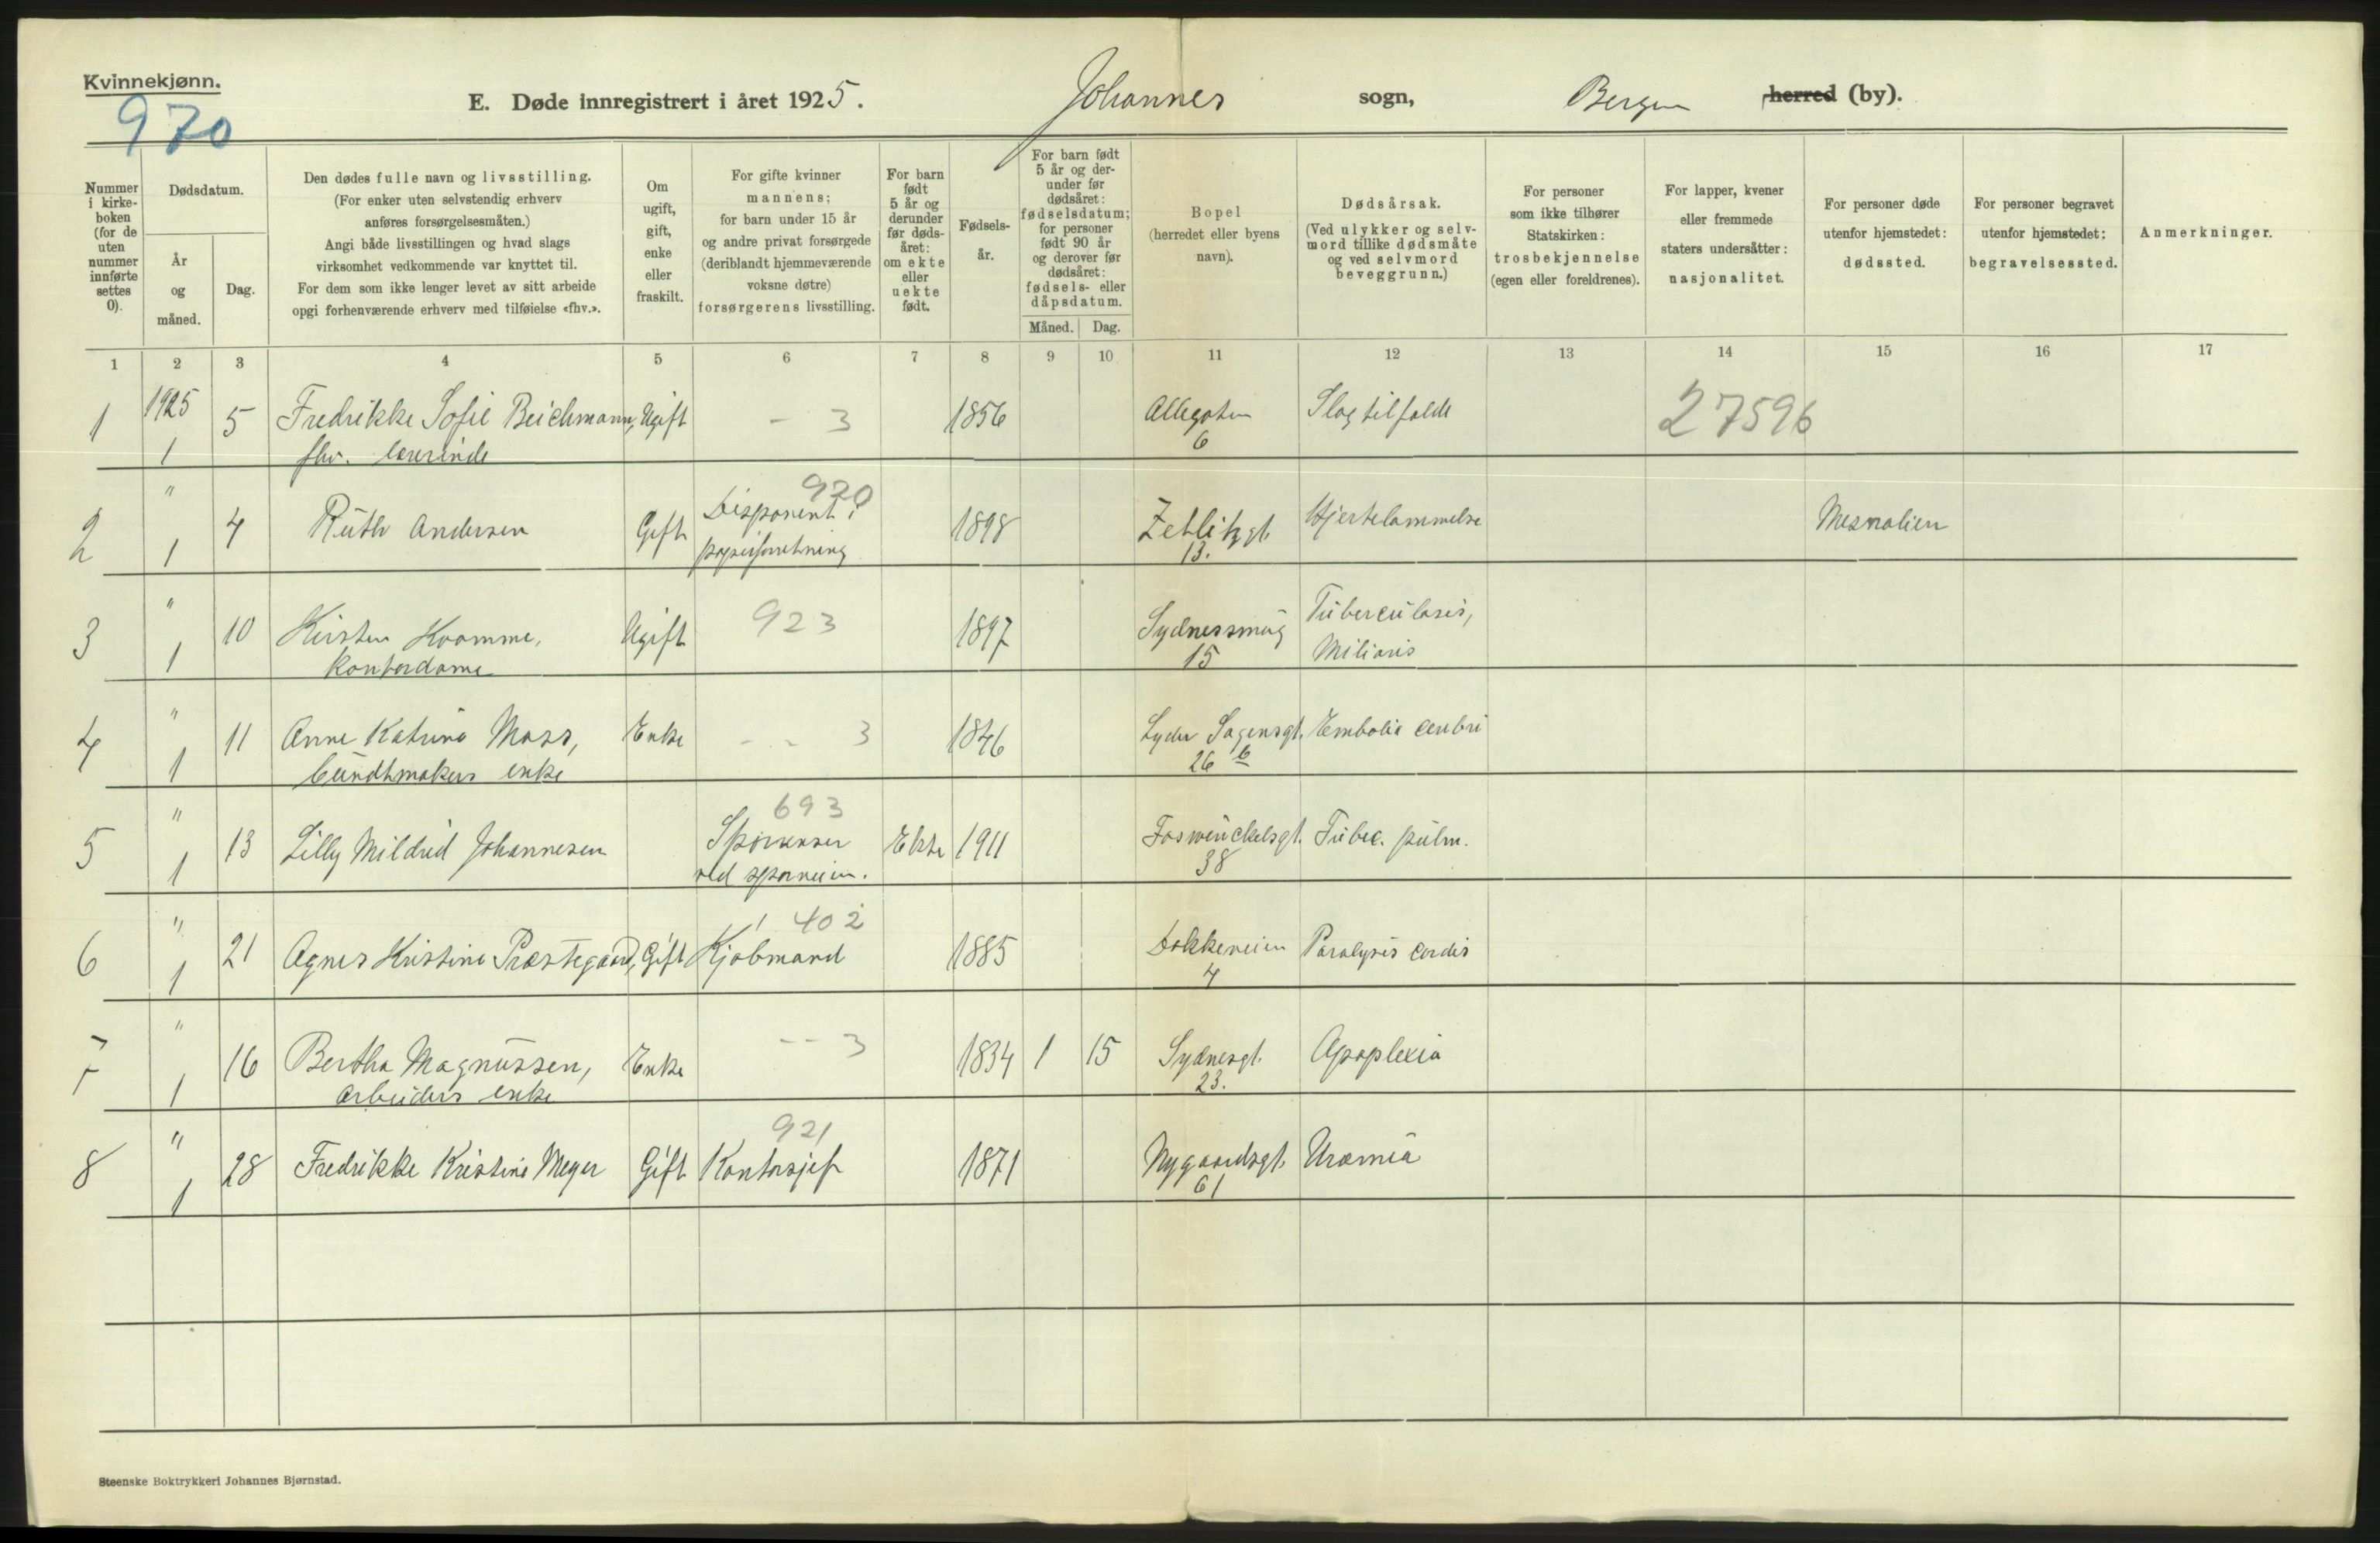 Kvinnekjønn.
970
E. Døde innregistrert i året 1925.
Johannes sogn,
Bergen herred (by).
Nummer i kirke-boken (for de uten nummer innførte settes 0).
Dødsdatum.
År og måned.
Dag.
Den dødes fulle navn og livsstilling.
(For enker uten selvstendig erhverv
anføres forsørgelsesmåten.)
Angi både livsstillingen og hvad slags
virksomhet vedkommende var knyttet til.
For dem som ikke lenger levet av sitt arbeide
opgi forhenværende erhverv med tilføielse «fhv.».
Om ugift, gift, enke eller fraskilt.
For gifte kvinner
mannens;
for barn under 15 år
og andre privat forsørgede
(deriblandt hjemmeværende
voksne døtre)
forsørgerens livsstilling.
For barn født 5 år og derunder før døds-året: om ekte eller uekte født.
Fødsels-år.
For barn født 5 år og der-under før dødsåret: fødselsdatum; for personer født 90 år og derover før dødsåret: fødsels- eller dåpsdatum.
Måned. Dag.
Bopel
(herredet eller byens
navn).
Dødsårsak.
(Ved ulykker og selv-
mord tillike dødsmåte
og ved selvmord
beveggrunn.)
For personer
som ikke tilhører
Statskirken:
trosbekjennelse
(egen eller foreldrenes).
For lapper, kvener
eller fremmede
staters undersåtter:
nasjonalitet.
For personer døde
utenfor hjemstedet:
dødssted.
For personer begravet
utenfor hjemstedet:
begravelsessted.
Anmerkninger.
1 2 3 4 5 6 7 8 9 10 11 12 13 14 15 16 17
1 1925 5 Fredrikke Sofie Beichmann, Ugift - 3 1856 Allegaten Slagtilfælde 27596
1 fhv. lærerinde 6
920
2 " 4 Ruth Andersen Gift Disponent i 1898 Zetlitzgt. Hjertelammelse Mesnalien
1 papirforretning 13.
3 " 10 Kirsten Kvamme, Ugift 923 1897 Sydnessmug Tuberculosis,
1 Kontordame 15 Miliaris
4 " 11 Anne Katrine Moss, Enke - - 3 1846 Lyder Sagensgt. Embolia cerebri
1 bundtmakers enke 26 b
693
5 " 13 Lilly Mildred Johannesen Ekte 1911 Foswinckelsgt. Tuberc. pulm.
1 ved sporveien. 38
402
6 " 21 Agnes Kristine Præstegaard, Gift Kjøbmand 1885 Dokkeveien Paralysis cordis
1 4
7 " 16 Bertha Magnussen, Enke - - 3 1834 1 15 Sydnesgt. Apoplexia
1 Arbeiders enke 23.
921
8 " 28 Fredrikke Kristine Meyer Gift Kontorsjef 1871 Nygaardsgt. Uræmia
1 61
Steenske Boktrykkeri Johannes Bjørnstad.